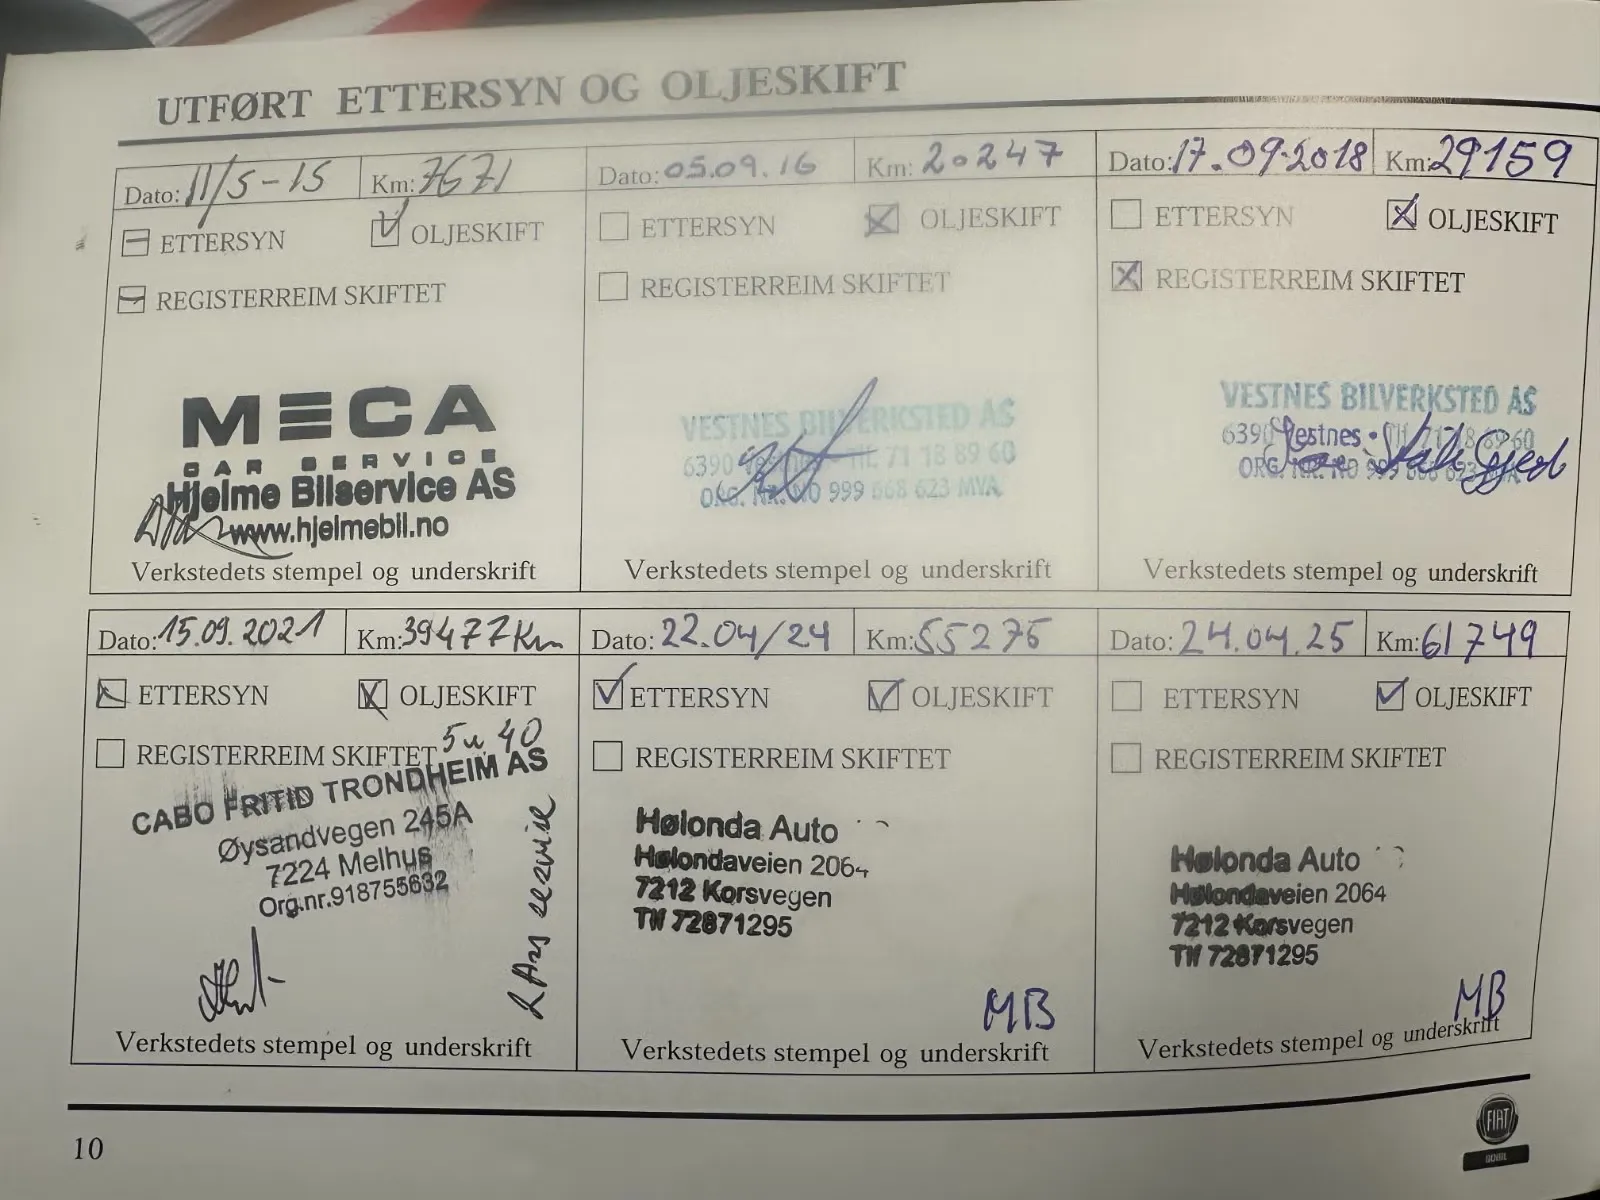 UTFØRT ETTERSYN OG OLJESKIFT
Dato: 11/5-15 Km: 7671
ETTERSYN OLJESKIFT
REGISTERREIM SKIFTET
MECA
CAR SERVICE
Hjelme Bilservice AS
www.hjelmebil.no
Verkstedets stempel og underskrift
Dato: 05.09.16 Km: 20247
ETTERSYN OLJESKIFT
REGISTERREIM SKIFTET
VESTNES BILVERKSTED AS
6390 Vestnes Tlf. 71 18 89 60
ORG. NR. NO 999 668 623 MVA
Verkstedets stempel og underskrift
Dato: 17.09.2018 Km: 29159
ETTERSYN OLJESKIFT
REGISTERREIM SKIFTET
VESTNES BILVERKSTED AS
6390 Vestnes • Tlf. 71 18 89 60
ORG. NR. NO 999 668 623 MVA
Verkstedets stempel og underskrift
Dato: 15.09.2021 Km: 39477 Km
ETTERSYN OLJESKIFT
REGISTERREIM SKIFTET 5w 40
CABO FRITID TRONDHEIM AS
Øysandvegen 245A
7224 Melhus
Org.nr.918755632
Verkstedets stempel og underskrift
Dato: 22.04/24 Km: 55276
ETTERSYN OLJESKIFT
REGISTERREIM SKIFTET
Hølonda Auto
Hølondaveien 2064
7212 Korsvegen
Tlf 72871295
MB
Verkstedets stempel og underskrift
Dato: 24.04.25 Km: 61749
ETTERSYN OLJESKIFT
REGISTERREIM SKIFTET
Hølonda Auto
Hølondaveien 2064
7212 Korsvegen
Tlf 72871295
MB
Verkstedets stempel og underskrift
10
FIAT